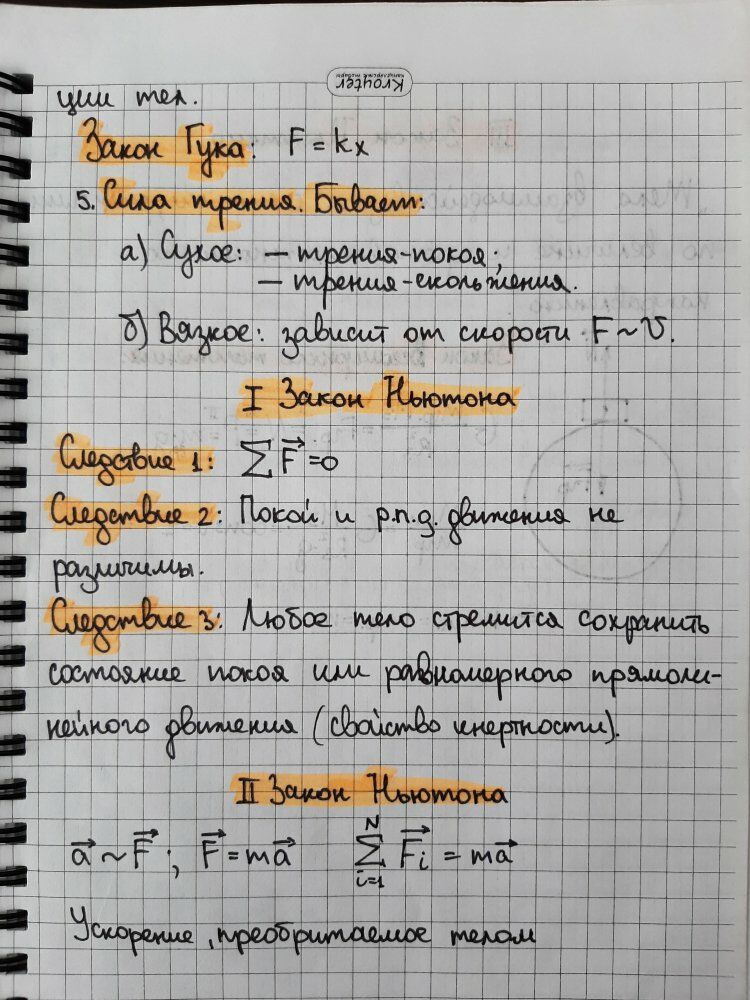 Kroyter
канцелярские товары
ции тел.
Закон Гука: F = kx
5. Сила трения. Бывает:
а) Сухое: — трения-покоя;
— трения-скольжения.
б) Вязкое: зависит от скорости F ~ v.
I Закон Ньютона
Следствие 1: ∑F⃗ = 0
Следствие 2: Покой и р.п.д. движения не
различимы.
Следствие 3: Любое тело стремится сохранить
состояние покоя или равномерного прямоли-
нейного движения (свойство инертности).
II Закон Ньютона
a⃗ ~ F⃗; F⃗ = ma⃗ ∑ᵢ₌₁ᴺ F⃗ᵢ = ma⃗
Ускорение, преобритаемое телом